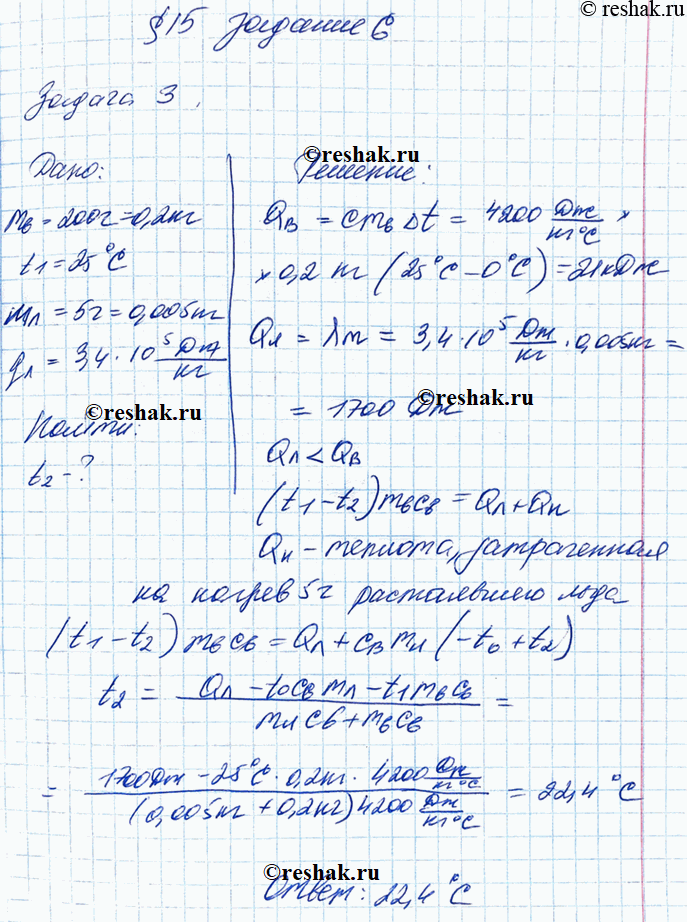 ©reshak.ru
§15 Задание 6
Задача 3.
Дано:
mв = 200г = 0,2кг
t1 = 25°C
mл = 5г = 0,005кг
qл = 3,4·10⁵ Дж/кг
©reshak.ru
Найти:
t2 - ?
©reshak.ru
Решение:
Qв = cmвΔt = 4200 Дж/кг°C ×
× 0,2 кг (25°C - 0°C) = 21кДж
Qл = λm = 3,4·10⁵ Дж/кг · 0,005кг =
©reshak.ru
= 1700 Дж
Qл < Qв
(t1 - t2) mвcв = Qл + Qн
Qн - теплота, затраченная
на нагрев 5г растаявшего льда
(t1 - t2) mвcв = Qл + cвmл (-t0 + t2)
t2 = (Qл - t0cвmл - t1mвcв) / (mлcв + mвcв) =
= (1700Дж - 25°C · 0,2кг · 4200 Дж/кг°C) / ((0,005кг + 0,2кг) 4200 Дж/кг°C) = 22,4°C
©reshak.ru
Ответ: 22,4°C